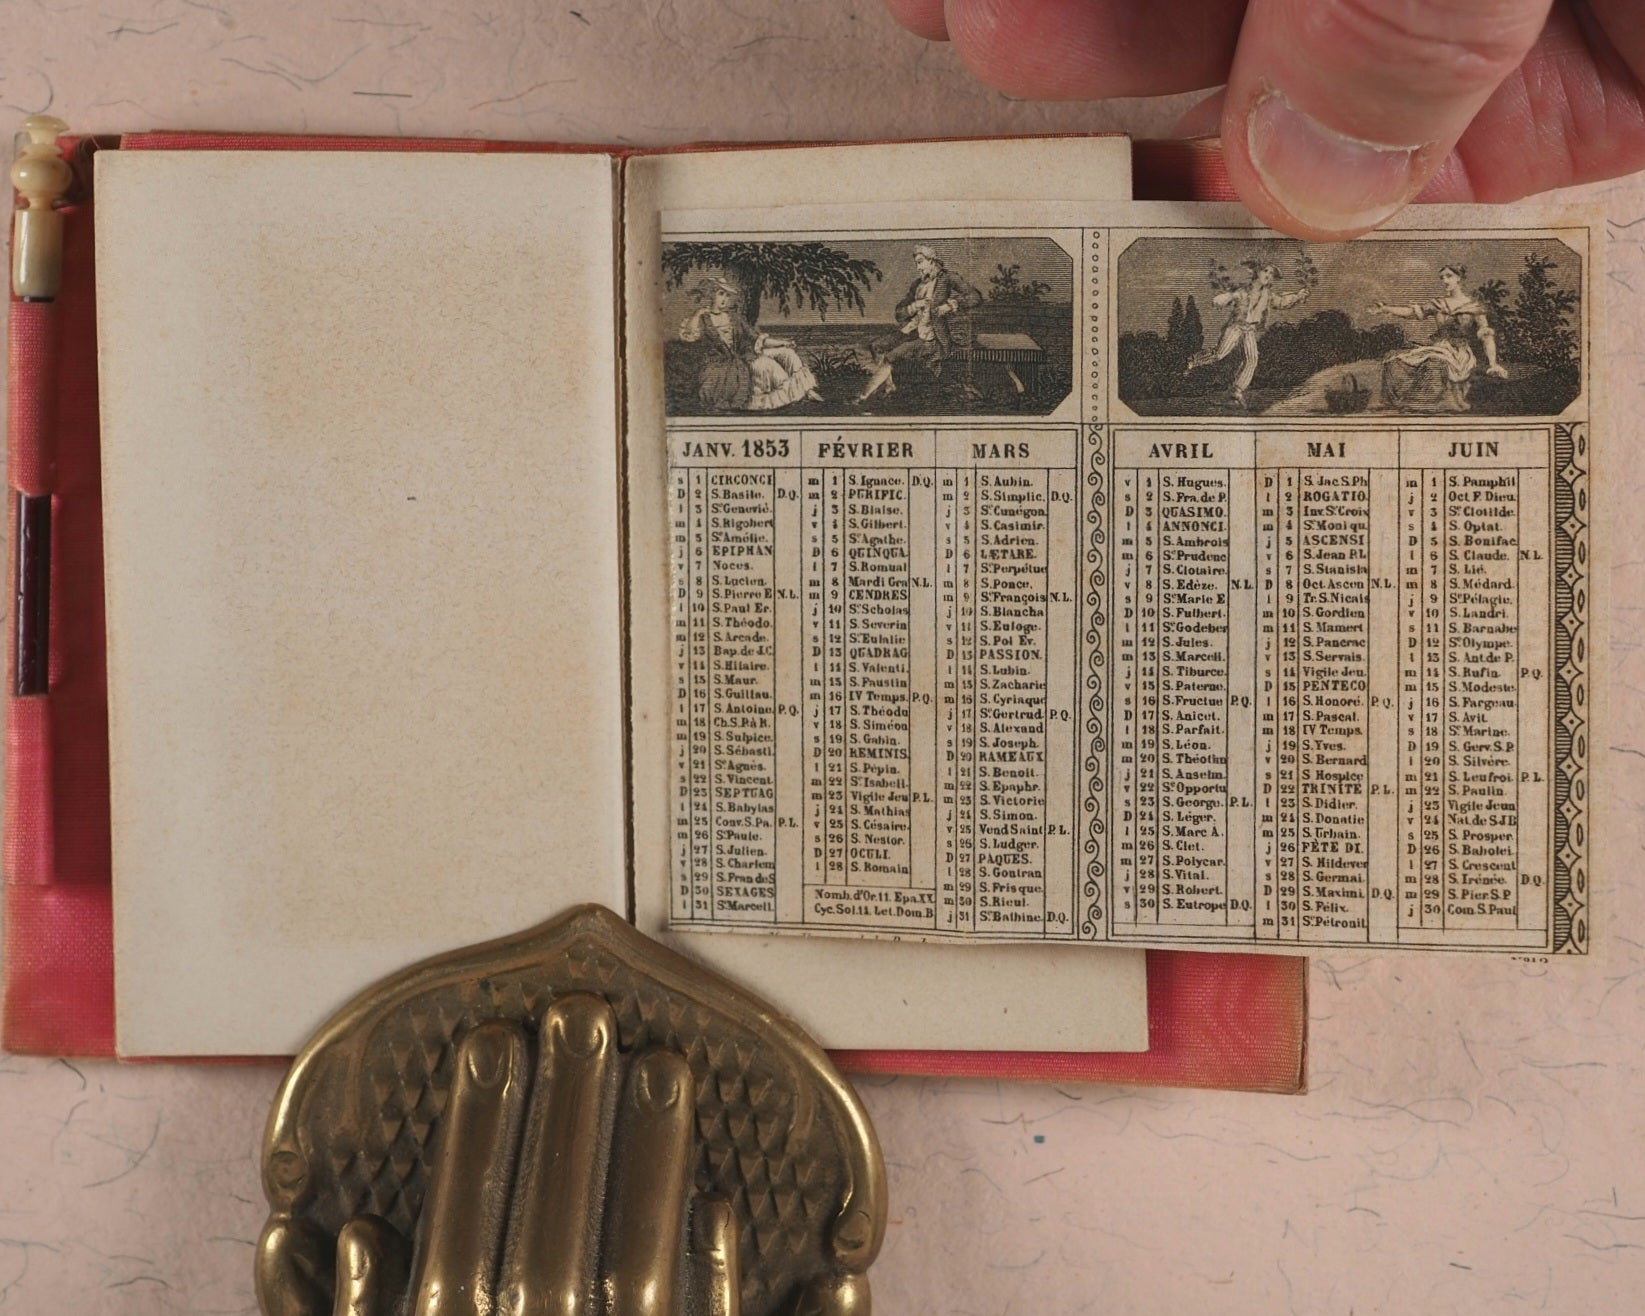 JANV. 1853
s 1 CIRCONCI
D 2 S. Basile. D.Q.
l 3 Ste Genevié.
m 4 S. Rigobert
m 5 Ste Amélie.
j 6 EPIPHAN
v 7 Noces.
s 8 S. Lucien.
D 9 S. Pierre E N.L.
l 10 S. Paul Er.
m 11 S. Théodo.
m 12 S. Arcade.
j 13 Bap. de J.C.
v 14 S. Hilaire.
s 15 S. Maur.
D 16 S. Guillau.
l 17 S. Antoine. P.Q.
m 18 Ch. S. P. à R.
m 19 S. Sulpice.
j 20 S. Sébasti.
v 21 Ste Agnès.
s 22 S. Vincent
D 23 SEPTUAG
l 24 S. Babylas
m 25 Conv. S. Pa. P.L.
m 26 Ste Paule.
j 27 S. Julien.
v 28 S. Charlem
s 29 S. Fran de S
D 30 SEXAGES
l 31 Ste Marcell.
FÉVRIER
m 1 S. Ignace. D.Q.
m 2 PURIFIC.
j 3 S. Blaise.
v 4 S. Gilbert.
s 5 Ste Agathe.
D 6 QUINQUA.
l 7 S. Romual
m 8 Mardi Gra N.L.
m 9 CENDRES
j 10 Ste Scholas
v 11 S. Severin
s 12 Ste Eulalie
D 13 QUADRAG
l 14 S. Valenti.
m 15 S. Faustin
m 16 IV Temps. P.Q.
j 17 S. Théodu
v 18 S. Siméon
s 19 S. Gabin.
D 20 REMINIS.
l 21 S. Pépin.
m 22 Ste Isabell.
m 23 Vigile Jeu P.L.
j 24 S. Mathias
v 25 S. Césaire.
s 26 S. Nestor.
D 27 OCULI.
l 28 S. Romain
Nomb. d'Or. 11. Epa. XX.
Cyc. Sol. 14. Let. Dom. B
MARS
m 1 S. Aubin.
m 2 S. Simplic. D.Q.
j 3 Ste Cunégon
v 4 S. Casimir.
s 5 S. Adrien.
D 6 LÆTARE.
l 7 Ste Perpétue
m 8 S. Ponce.
m 9 Ste François N.L.
j 10 S. Blancha
v 11 S. Euloge.
s 12 S. Pol Ev.
D 13 PASSION.
l 14 S. Lubin.
m 15 S. Zacharie
m 16 S. Cyriaque
j 17 Ste Gertrud. P.Q.
v 18 S. Alexand
s 19 S. Joseph.
D 20 RAMEAUX
l 21 S. Benoit.
m 22 S. Epaphr.
m 23 S. Victorie
j 24 S. Simon.
v 25 Vend Saint P.L.
s 26 S. Ludger.
D 27 PAQUES.
l 28 S. Gontran
m 29 S. Frisque.
m 30 S. Rieul.
j 31 Ste Balbine. D.Q.
AVRIL
v 1 S. Hugues.
s 2 S. Fra. de P.
D 3 QUASIMO.
l 4 ANNONCI.
m 5 S. Ambrois
m 6 Ste Prudenc
j 7 S. Clotaire.
v 8 S. Edèze. N.L.
s 9 Ste Marie E
D 10 S. Fulbert.
l 11 Ste Godeber
m 12 S. Jules.
m 13 S. Marcell.
j 14 S. Tiburce.
v 15 S. Paterne.
s 16 S. Fructue P.Q.
D 17 S. Anicet.
l 18 S. Parfait.
m 19 S. Léon.
m 20 S. Théotim
j 21 S. Anselm.
v 22 Ste Opportu
s 23 S. George. P.L.
D 24 S. Léger.
l 25 S. Marc A.
m 26 S. Clet.
m 27 S. Polycar.
j 28 S. Vital.
v 29 S. Robert.
s 30 S. Eutrope D.Q.
MAI
D 1 S. Jac S. Ph
l 2 ROGATIO.
m 3 Inv. Ste Croix
m 4 Ste Moniqu.
j 5 ASCENSI
v 6 S. Jean P.L
s 7 S. Stanisla
D 8 Oct. Ascen N.L.
l 9 Tr. S. Nicais
m 10 S. Gordien
m 11 S. Mamert
j 12 S. Pancrac
v 13 S. Servais.
s 14 Vigile Jeu.
D 15 PENTECO
l 16 S. Honoré. P.Q.
m 17 S. Pascal.
m 18 IV Temps.
j 19 S. Yves.
v 20 S. Bernard
s 21 S Hospice
D 22 TRINITE P.L.
l 23 S. Didier.
m 24 S. Donatie
m 25 S. Urbain.
j 26 FÊTE DI.
v 27 S. Hildever
s 28 S. Germai.
D 29 S. Maximi. D.Q.
l 30 S. Félix.
m 31 Ste Pétronil
JUIN
m 1 S. Pamphil
j 2 Oct F. Dieu.
v 3 Ste Clotilde.
s 4 S. Optat.
D 5 S. Bonifac.
l 6 S. Claude. N.L.
m 7 S. Lié.
m 8 S. Médard.
j 9 Ste Pélagie.
v 10 S. Landri.
s 11 S. Barnabé
D 12 Ste Olympe.
l 13 S. Ant. de P.
m 14 S. Rufin. P.Q.
m 15 S. Modeste.
j 16 S. Fargeau.
v 17 S. Avit.
s 18 Ste Marine.
D 19 S. Gerv. S. P.
l 20 S. Silvère.
m 21 S. Leufroi. P.L.
m 22 S. Paulin.
j 23 Vigile Jeun
v 24 Nat. de S J B
s 25 S. Prosper.
D 26 S. Babolei.
l 27 S. Crescent
m 28 S. Irénée. D.Q.
m 29 S. Pier S. P.
j 30 Com. S. Paul